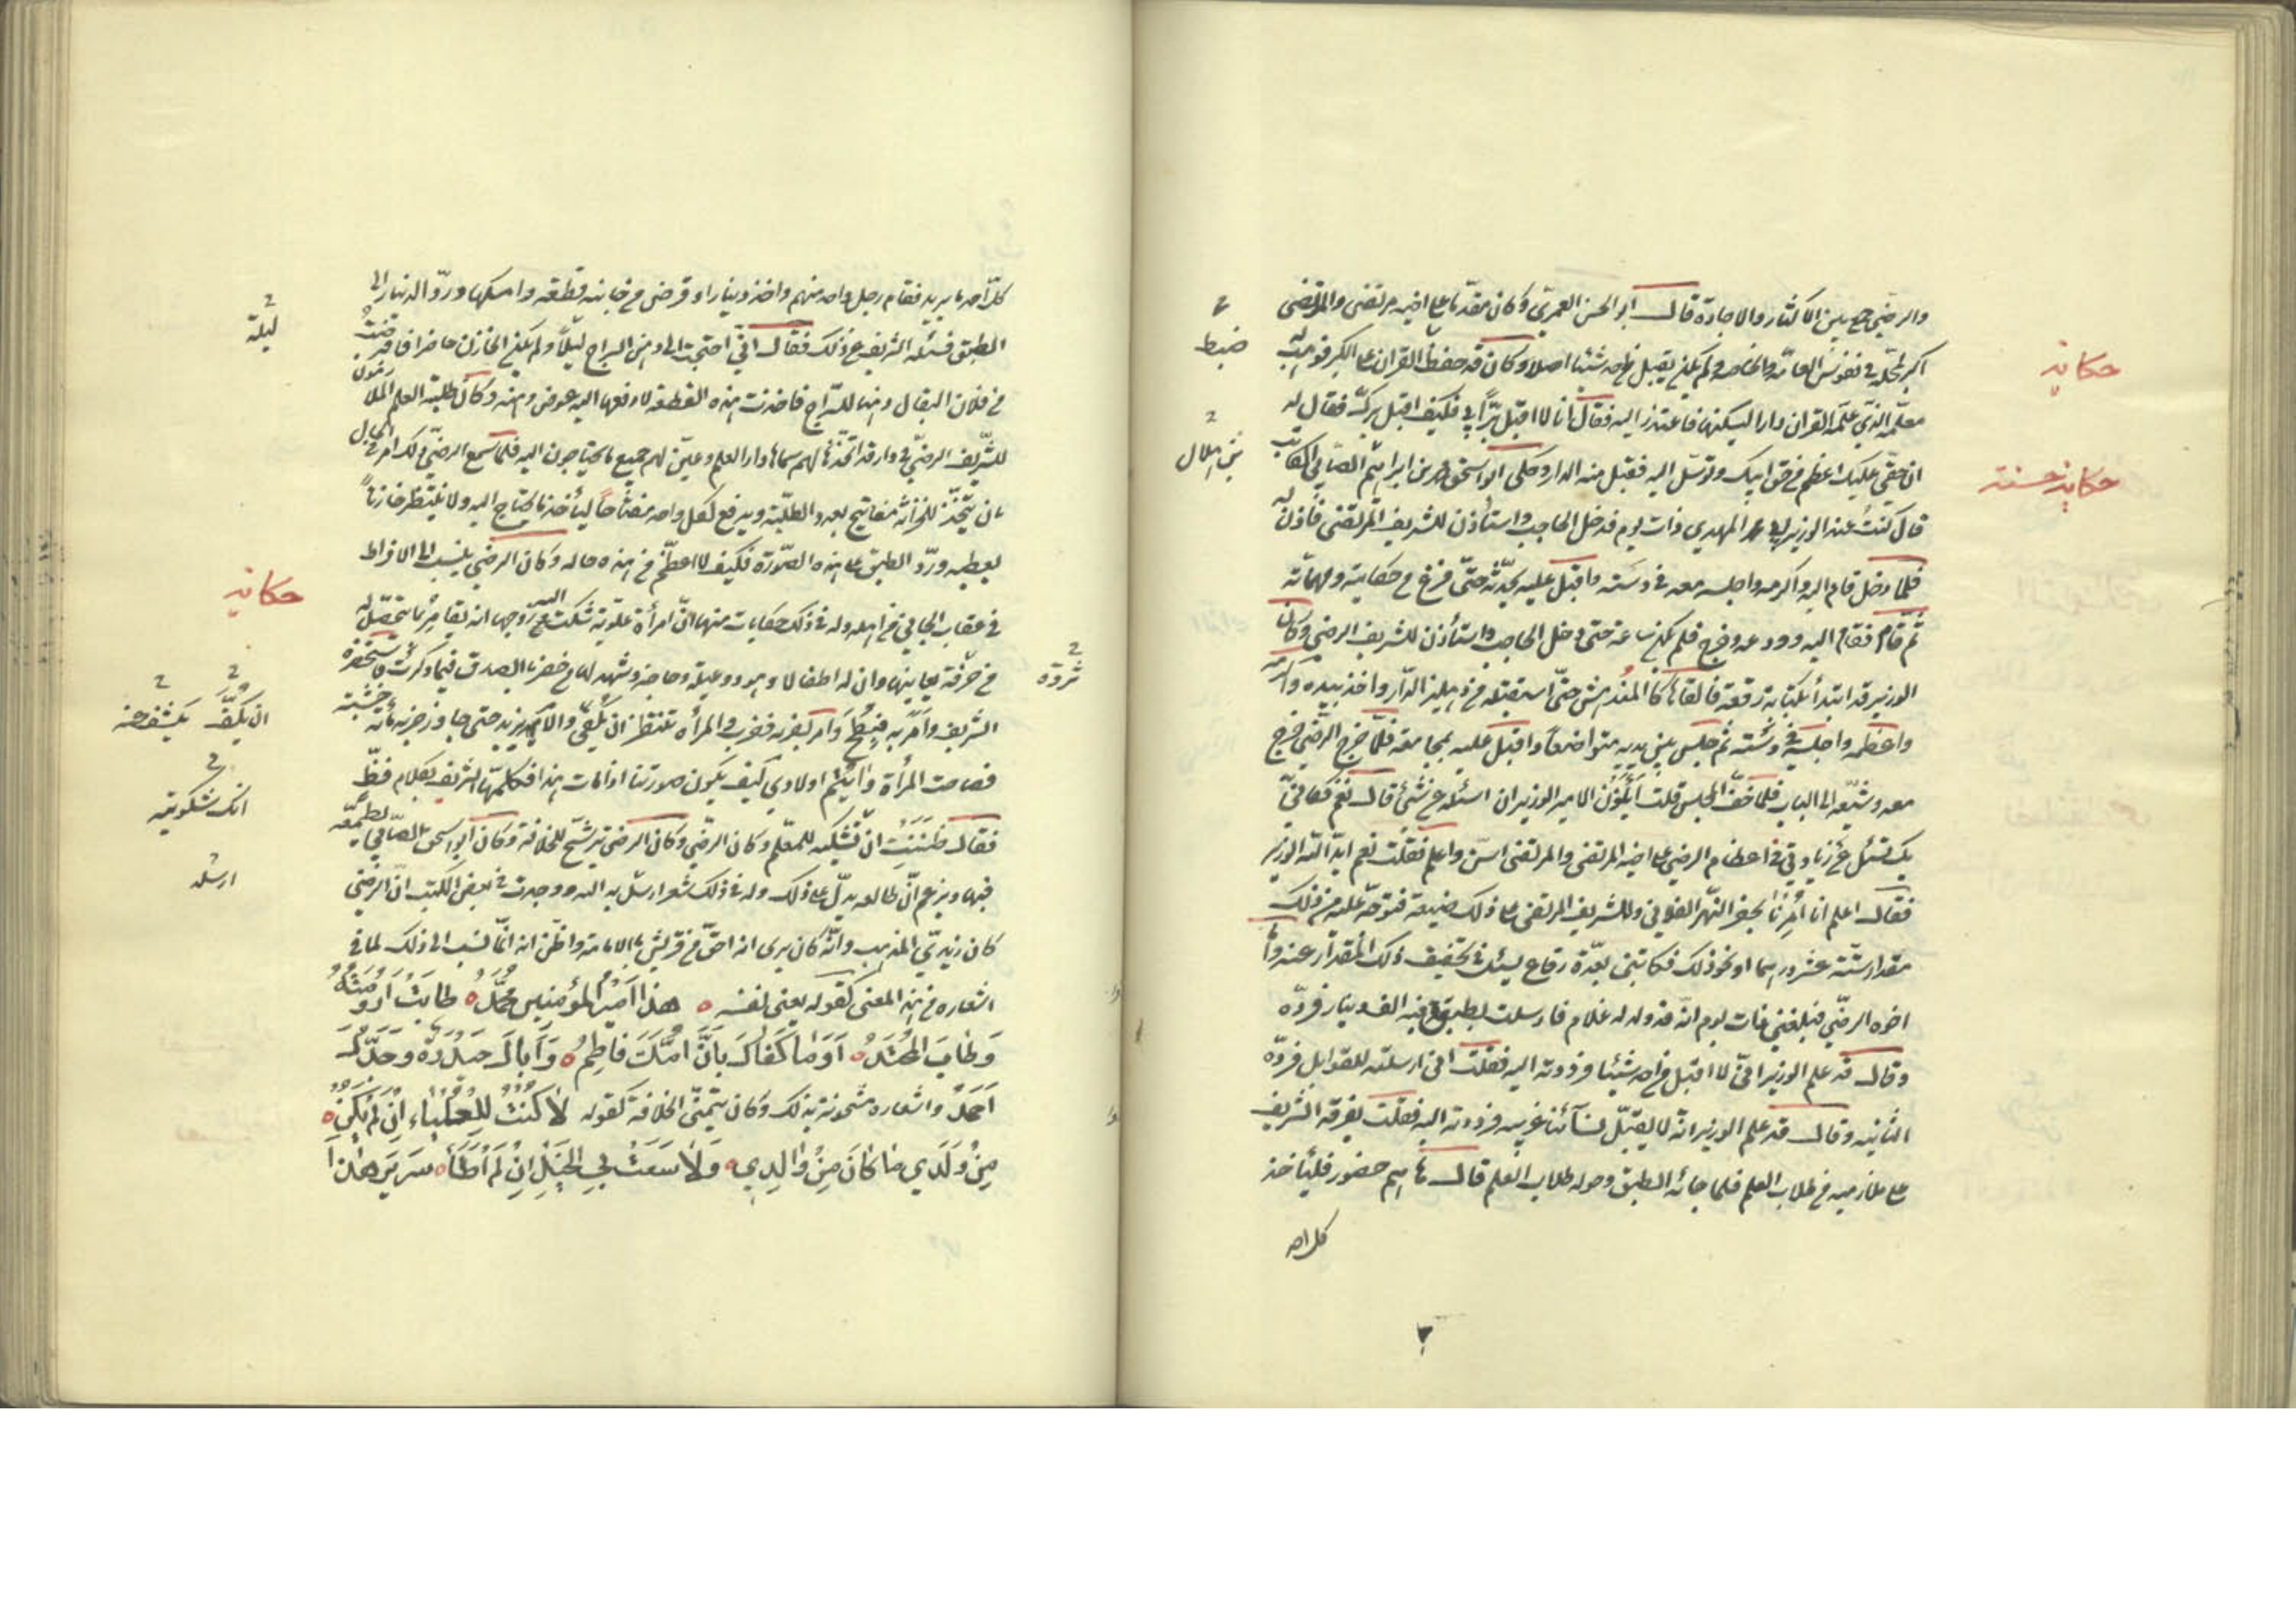 والرضي جمع بين الاكثار والاجادة قال ابو الحسن العمري وكان مقدما على اخيه مرتضى والمرتضى
اكبر لمحله في نفوس العامة والخاصة ولم يكن يقبل من احد شيئا اصلا وكان قد حفظ القران على الكبر فوهب له
معلمه الذي علمه القران دارا ليسكنها فاعتذر اليه فقال انا لا اقبل بر ابي فكيف اقبل برك فقال له
ان حقي عليك اعظم من حق ابيك وتوسل اليه فقبل منه الدار وحكى ابو اسحق بن ابراهيم الصابي الكاتب
قال كنت عند الوزير ابي محمد المهدي ذات يوم فدخل الحاجب واستأذن للشريف المرتضى فاذن له
فلما دخل قام اليه واكرمه واجلسه معه في دسته واقبل عليه يحدثه حتى فرغ من حكايته ومهماته
ثم قام فقام اليه وودعه وخرج فلم يكن ساعة حتى دخل الحاجب واستأذن للشريف الرضي وكان
الوزير قد ابتدأ بكتابة رقعة فالقاها كالمندهش حتى استقبله من دهليز الدار واخذ بيده
واعظمه واجلسه في دسته ثم جلس بين يديه متواضعا واقبل عليه بمجامعه فلما خرج الرضي خرج
معه وشيعه الى الباب فلما خف المجلس قلت أيأذن الامير الوزير ان اسئله عن شئ قال نعم كأني
بك تسئل عن زيادتي في اعظام الرضي على اخيه المرتضى والمرتضى اسن واعلم فقلت نعم ايد الله الوزير
فقال اعلم انا امرنا بحفر النهر الفلاني وللشريف المرتضى على ذلك ضيعة فتوجه عليه من ذلك
مقدار ستة عشر درهما او نحو ذلك فكاتبني بعدة رقاع يسئل في تخفيف ذلك المقدار عنه واما
اخوه الرضي فبلغني ذات يوم انه قد ولد له غلام فارسلت بطبق فيه الف دينار فرده
وقال قد علم الوزير اني لا اقبل من احد شيئا فرددته اليه فقلت اني ارسلته للقوابل فرده
الثانية وقال قد علم الوزير انه لا يقبل نسآئنا غريبه فرددته اليه فقلت يفرقه الشريف
على ملازميه من طلاب العلم فلما جائه الطبق وحوله طلاب العلم قال ها هم حضور فليأخذ
كل احد
ضبط
بن هلال
حكاية
حكاية حسنة
كل احد ما يريد فقام رجل واحد منهم واخذ دينارا وقرض من جانبه قطعة وامسكها ورد الدينار الى
الطبق فسئله الشريف عن ذلك فقال اني احتجت الى دهن السراج ليلا ولم يكن الخازن حاضرا فاقترضت
من فلان البقال دهنا للسراج فاخذت هذه القطعة لادفعها اليه عوض دهنه وكان طلبة العلم الملازمون
للشريف الرضي في دار قد اتخذها لهم سماها دار العلم وعين لهم جميع ما يحتاجون اليه فلما سمع الرضي ذلك امر في الحال
بان يتخذ للخزانة مفاتيح بعدد الطلبة ويدفع لكل واحد مفتاحا ليأخذ ما يحتاج اليه ولا ينتظر خازنا
يعطيه ورد الطبق على هذه الصورة فكيف لا اعظم من هذه حاله وكان الرضي ينسب الى الافراط
في عقاب الجاني من اهله وله في ذلك حكايات منها ان امرأة علوية شكت اليه زوجها انه يقامر بما يتحصل له
من حرفة يعانيها وان له اطفالا وهو ذو عيلة وحاجة وشهد لها من حضر بالصدق فيما ذكرت فاستحضره
الشريف وامر به فبطح وامر بضربه فضرب والمرأة تنتظر ان يكف والامر يزيد حتى جاوز ضربه مأئة خشبة
فصاحت المرأة وايتم اولادي كيف يكون صورتنا اذا مات هذا فكلمها الشريف بكلام فظ
فقال ظننت ان تشكيه للمعلم وكان الرضي وكان الرضي يترشح للخلافة وكان ابو اسحق الصابي يطمعه
فيها ويزعم ان طالعه يدل على ذلك وله في ذلك شعر ارسل به اليه ووجدت في بعض الكتب ان الرضي
كان زيدي المذهب وانه كان يرى انه احق من قريش بالامامة واظن انه انما نسب الى ذلك لما في
اشعاره من هذا المعنى كقوله يعني نفسه هذا امير المؤمنين محمد طابت ارومته
وطاب المحتد اوما كفاك بان امك فاطم واباك حيدرة وجدك
احمد واشعاره مشحونة بذلك وكان يتمنى الخلافة كقوله لا كنت للعلياء ان لم يكن
من ولدي ما كان من والدي ولا سعت بي الخيل ان لم اطأ سرير هذا
ليلة
حكاية
ثروة
ان يكف
انك تشكونه
ارسله